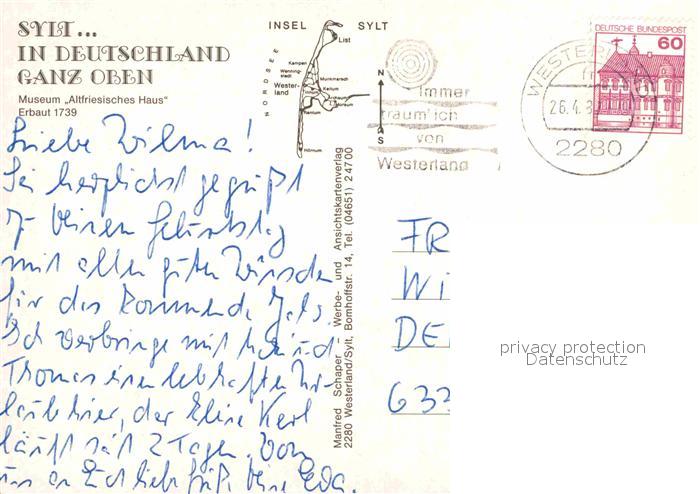 SYLT...
IN DEUTSCHLAND
GANZ OBEN
Museum „Altfriesisches Haus"
Erbaut 1739
INSEL SYLT
List
NORDSEE
Kampen
Wenning-
stedt
Munkmarsch
Wester-
land
Keitum
Morsum
Rantum
Hörnum
N
S
Immer
träum' ich
von
Westerland
26.4.8
2280
DEUTSCHE BUNDESPOST
60
Liebe Wilma!
Sei herzlichst gegrüßt
z. Deinem Geburtstag
mit allen guten Wünschen
für das kommende Jahr.
Ich verbringe mit
Thomas einen lebhaften Ur-
laub hier, der Kerl
läuft seit 2 Tagen. Von
uns an Euch liebe Grüße Deine
Manfred Schaper – Werbe- und Ansichtskartenverlag
2280 Westerland/Sylt, Bomhoffstr. 14, Tel. (04651) 24700
FR
WI
DE
633
privacy protection
Datenschutz